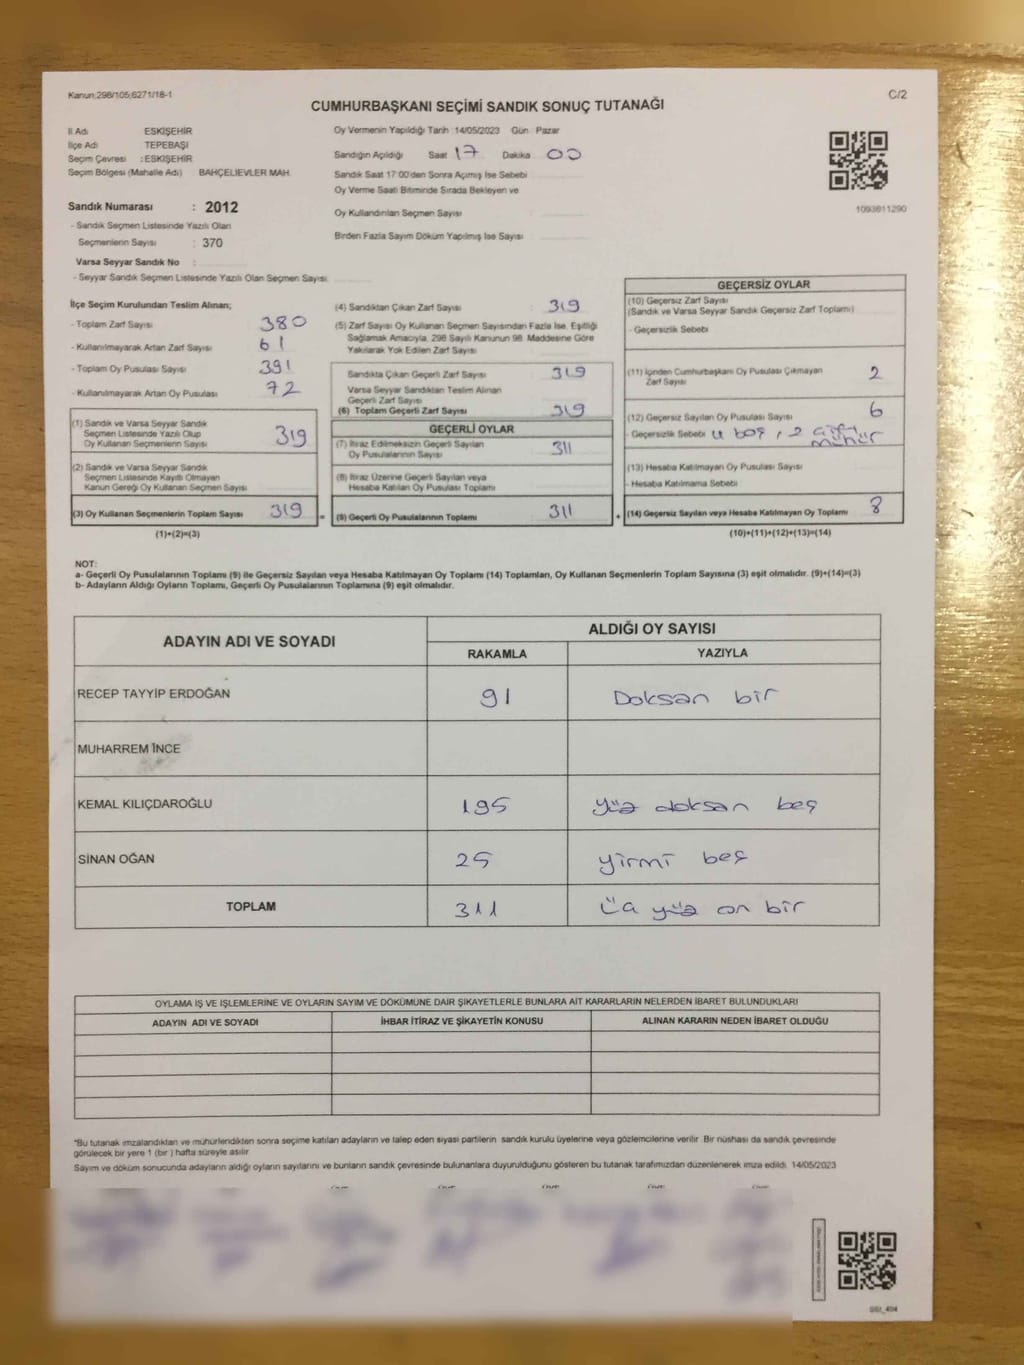 Kanun:298/105;6271/18-1
C/2
CUMHURBAŞKANI SEÇİMİ SANDIK SONUÇ TUTANAĞI
İl Adı ESKİŞEHİR
İlçe Adı TEPEBAŞI
Seçim Çevresi : ESKİŞEHİR
Seçim Bölgesi (Mahalle Adı) BAHÇELİEVLER MAH.
Sandık Numarası : 2012
- Sandık Seçmen Listesinde Yazılı Olan
Seçmenlerin Sayısı : 370
Varsa Seyyar Sandık No :
- Seyyar Sandık Seçmen Listesinde Yazılı Olan Seçmen Sayısı
Oy Vermenin Yapıldığı Tarih 14/05/2023 Gün Pazar
Sandığın Açıldığı Saat 17 Dakika 00
Sandık Saat 17:00'den Sonra Açımış İse Sebebi
Oy Verme Saati Bitiminde Sırada Bekleyen ve
Oy Kullandırılan Seçmen Sayısı
Birden Fazla Sayım Döküm Yapılmış İse Sayısı
1093811290
İlçe Seçim Kurulundan Teslim Alınan;
- Toplam Zarf Sayısı 380
- Kullanılmayarak Artan Zarf Sayısı 61
- Toplam Oy Pusulası Sayısı 391
- Kullanılmayarak Artan Oy Pusulası 72
(1) Sandık ve Varsa Seyyar Sandık
Seçmen Listesinde Yazılı Olup
Oy Kullanan Seçmenlerin Sayısı 319
(2) Sandık ve Varsa Seyyar Sandık
Seçmen Listesinde Kayıtlı Olmayan
Kanun Gereği Oy Kullanan Seçmen Sayısı
(3) Oy Kullanan Seçmenlerin Toplam Sayısı 319 =
(1)+(2)=(3)
(4) Sandıktan Çıkan Zarf Sayısı : 319
(5) Zarf Sayısı Oy Kullanan Seçmen Sayısından Fazla İse, Eşitliği
Sağlamak Amacıyla, 298 Sayılı Kanunun 98. Maddesine Göre
Yakılarak Yok Edilen Zarf Sayısı
Sandıkta Çıkan Geçerli Zarf Sayısı 319
Varsa Seyyar Sandıktan Teslim Alınan
Geçerli Zarf Sayısı
(6) Toplam Geçerli Zarf Sayısı 319
GEÇERLİ OYLAR
(7) İtiraz Edilmeksizin Geçerli Sayılan
Oy Pusulalarının Sayısı 311
(8) İtiraz Üzerine Geçerli Sayılan veya
Hesaba Katılan Oy Pusulası Toplamı
(9) Geçerli Oy Pusulalarının Toplamı 311 +
GEÇERSİZ OYLAR
(10) Geçersiz Zarf Sayısı
(Sandık ve Varsa Seyyar Sandık Geçersiz Zarf Toplamı)
- Geçersizlik Sebebi
(11) İçinden Cumhurbaşkanı Oy Pusulası Çıkmayan
Zarf Sayısı 2
(12) Geçersiz Sayılan Oy Pusulası Sayısı 6
- Geçersizlik Sebebi 4 boş, 2
mühür
(13) Hesaba Katılmayan Oy Pusulası Sayısı
- Hesaba Katılmama Sebebi
(14) Geçersiz Sayılan veya Hesaba Katılmayan Oy Toplamı 8
(10)+(11)+(12)+(13)=(14)
NOT:
a- Geçerli Oy Pusulalarının Toplamı (9) ile Geçersiz Sayılan veya Hesaba Katılmayan Oy Toplamı (14) Toplamları, Oy Kullanan Seçmenlerin Toplam Sayısına (3) eşit olmalıdır. (9)+(14)=(3)
b- Adayların Aldığı Oyların Toplamı, Geçerli Oy Pusulalarının Toplamına (9) eşit olmalıdır.
ADAYIN ADI VE SOYADI ALDIĞI OY SAYISI
RAKAMLA YAZIYLA
RECEP TAYYİP ERDOĞAN 91 Doksan bir
MUHARREM İNCE
KEMAL KILIÇDAROĞLU 195 yüz doksan beş
SİNAN OĞAN 25 yirmi beş
TOPLAM 311 Üç yüz on bir
OYLAMA İŞ VE İŞLEMLERİNE VE OYLARIN SAYIM VE DÖKÜMÜNE DAİR ŞİKAYETLERLE BUNLARA AİT KARARLARIN NELERDEN İBARET BULUNDUKLARI
ADAYIN ADI VE SOYADI İHBAR İTİRAZ VE ŞİKAYETİN KONUSU ALINAN KARARIN NEDEN İBARET OLDUĞU
*Bu tutanak imzalandıktan ve mühürlendikten sonra seçime katılan adayların ve talep eden siyasi partilerin sandık kurulu üyelerine veya gözlemcilerine verilir. Bir nüshası da sandık çevresinde
görülecek bir yere 1 (bir ) hafta süreyle asılır.
Sayım ve döküm sonucunda adayların aldığı oyların sayılarını ve bunların sandık çevresinde bulunanlara duyurulduğunu gösteren bu tutanak tarafımızdan düzenlenerek imza edildi. 14/05/2023